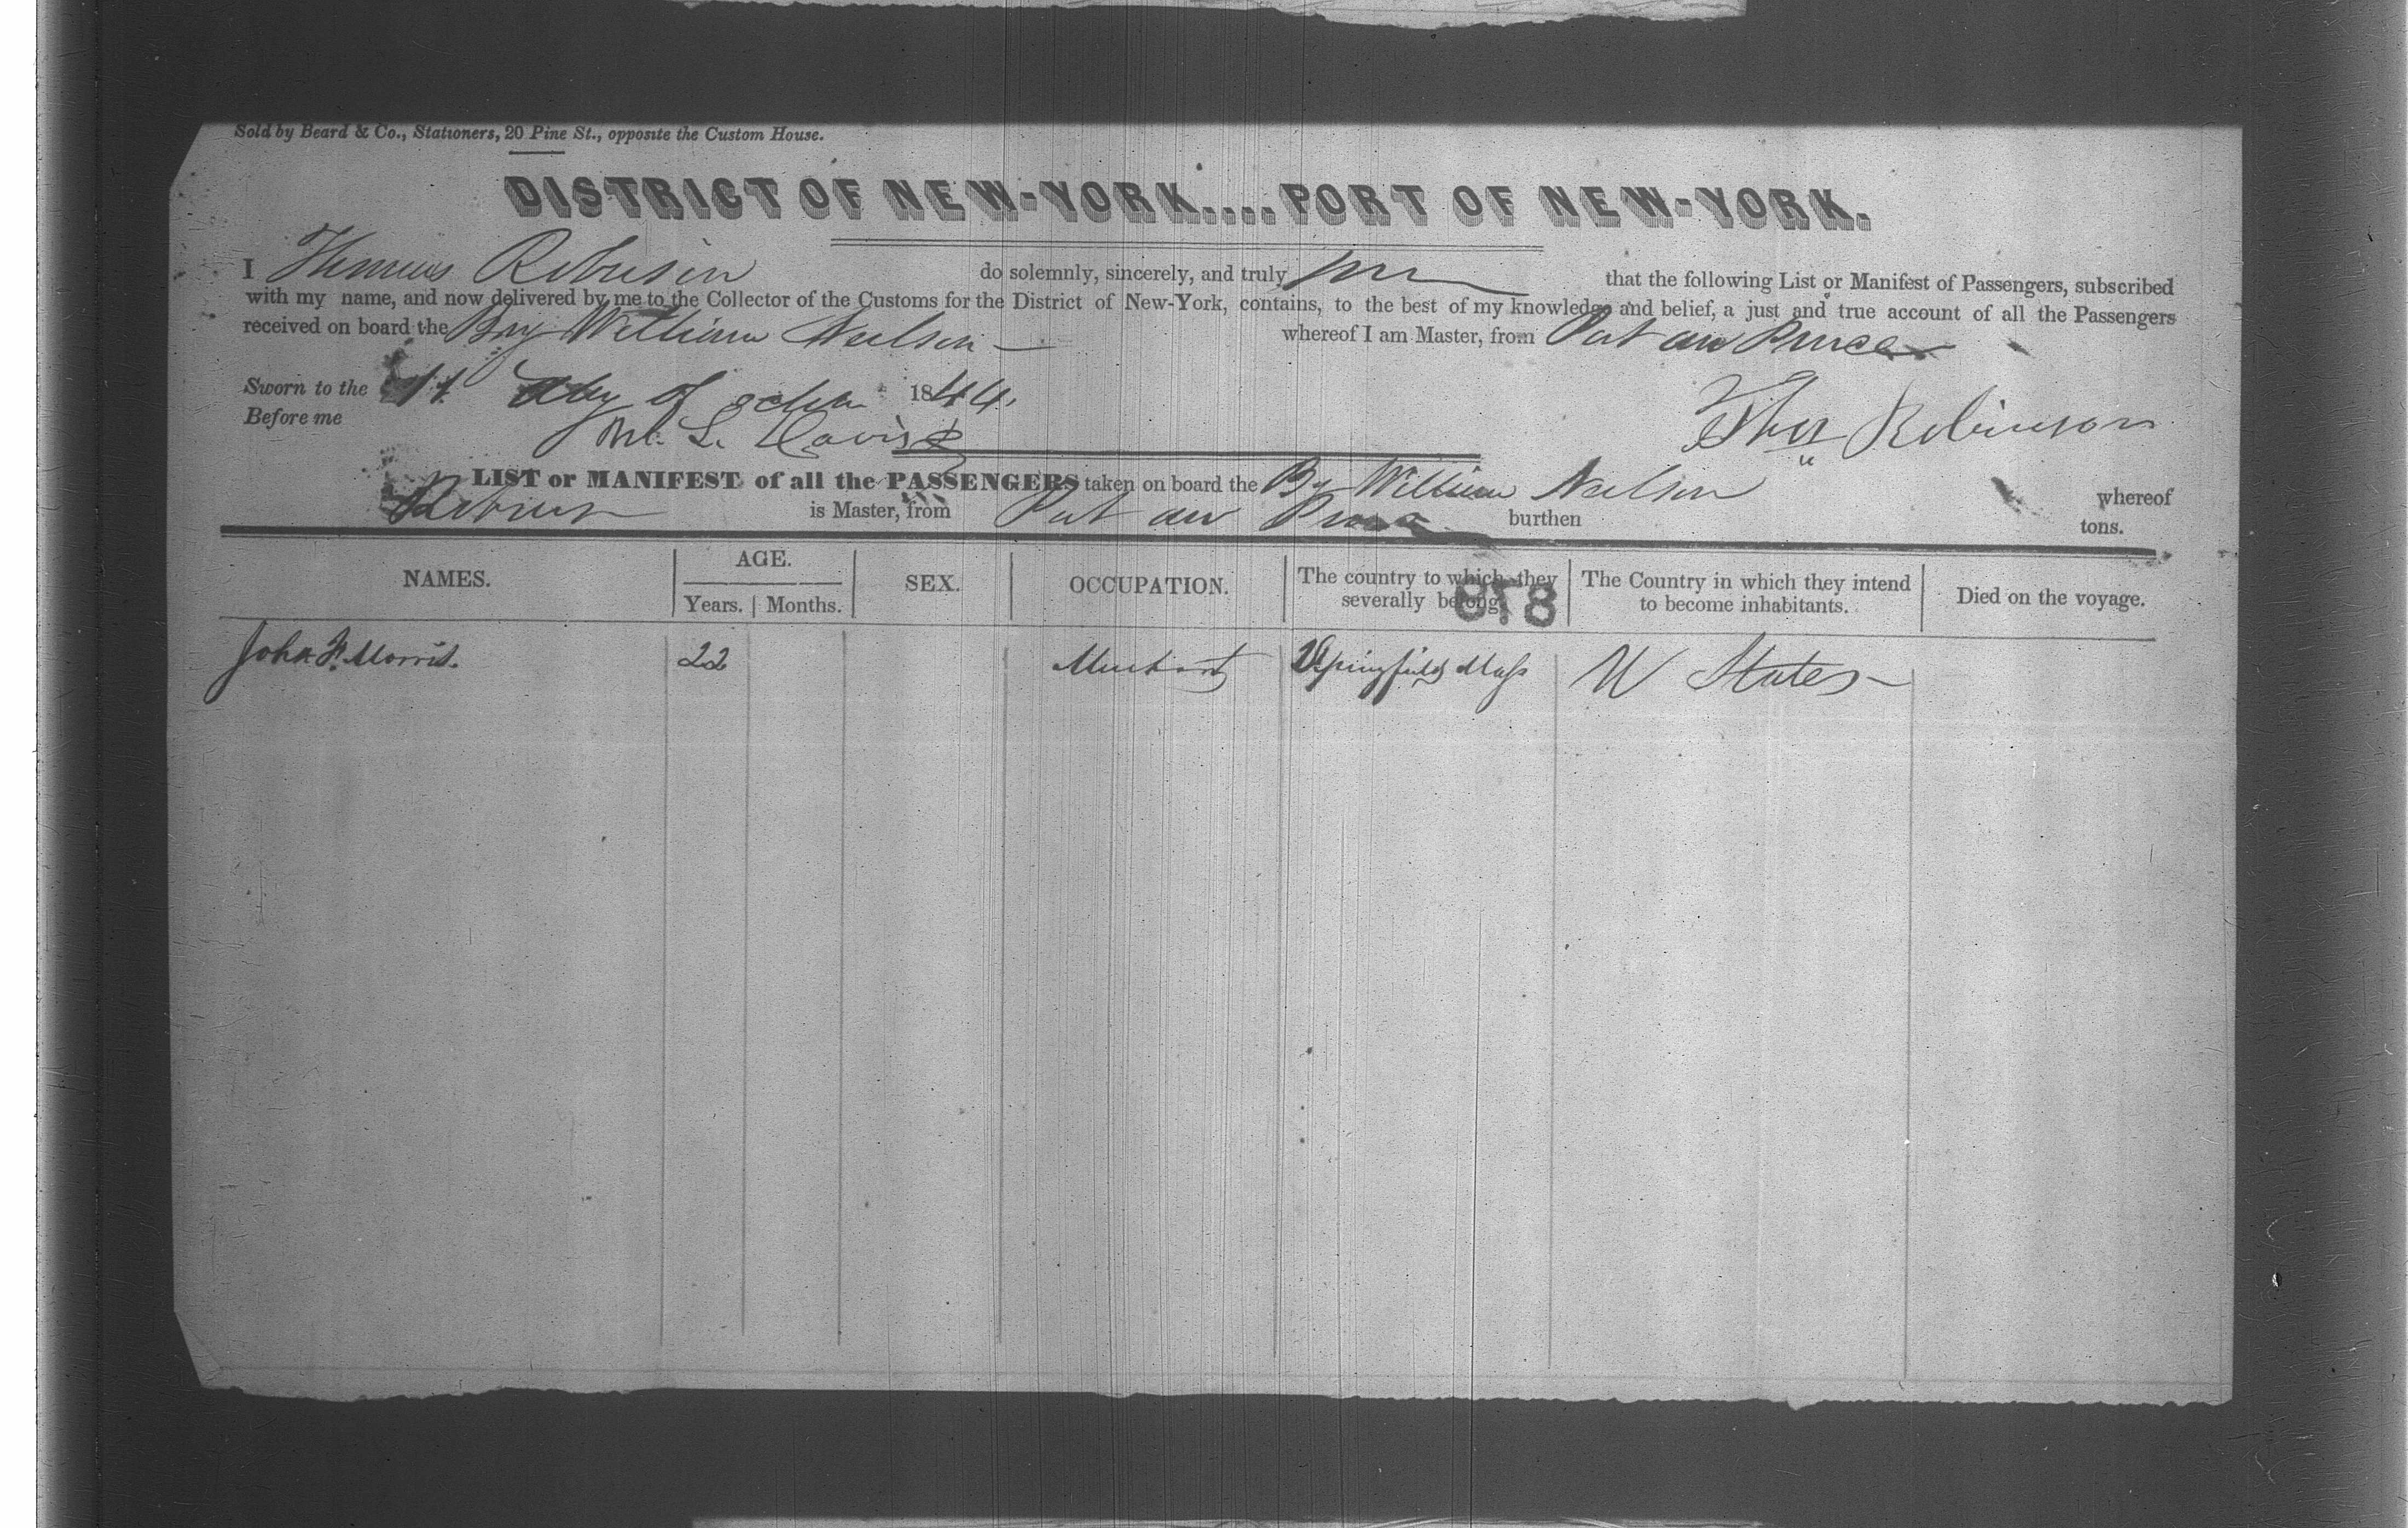 Sold by Beard & Co., Stationers, 20 Pine St., opposite the Custom House.
DISTRICT OF NEW-YORK....PORT OF NEW-YORK.
I Thomas Robinson do solemnly, sincerely, and truly that the following List or Manifest of Passengers, subscribed
with my name, and now delivered by me to the Collector of the Customs for the District of New-York, contains, to the best of my knowledge and belief, a just and true account of all the Passengers
received on board the Brig William Neilson whereof I am Master, from Port au Prince
Sworn to the day of 1844.
Before me M. L. Davis
Thos Robinson
LIST or MANIFEST of all the PASSENGERS taken on board the Bg William Neilson whereof
Robinson is Master, from Port au Prince burthen tons.
NAMES. AGE. SEX. OCCUPATION. The country to which they severally belong. The Country in which they intend to become inhabitants. Died on the voyage.
Years. Months.
818
John Morris. 22 Merchant Springfield Mass U States